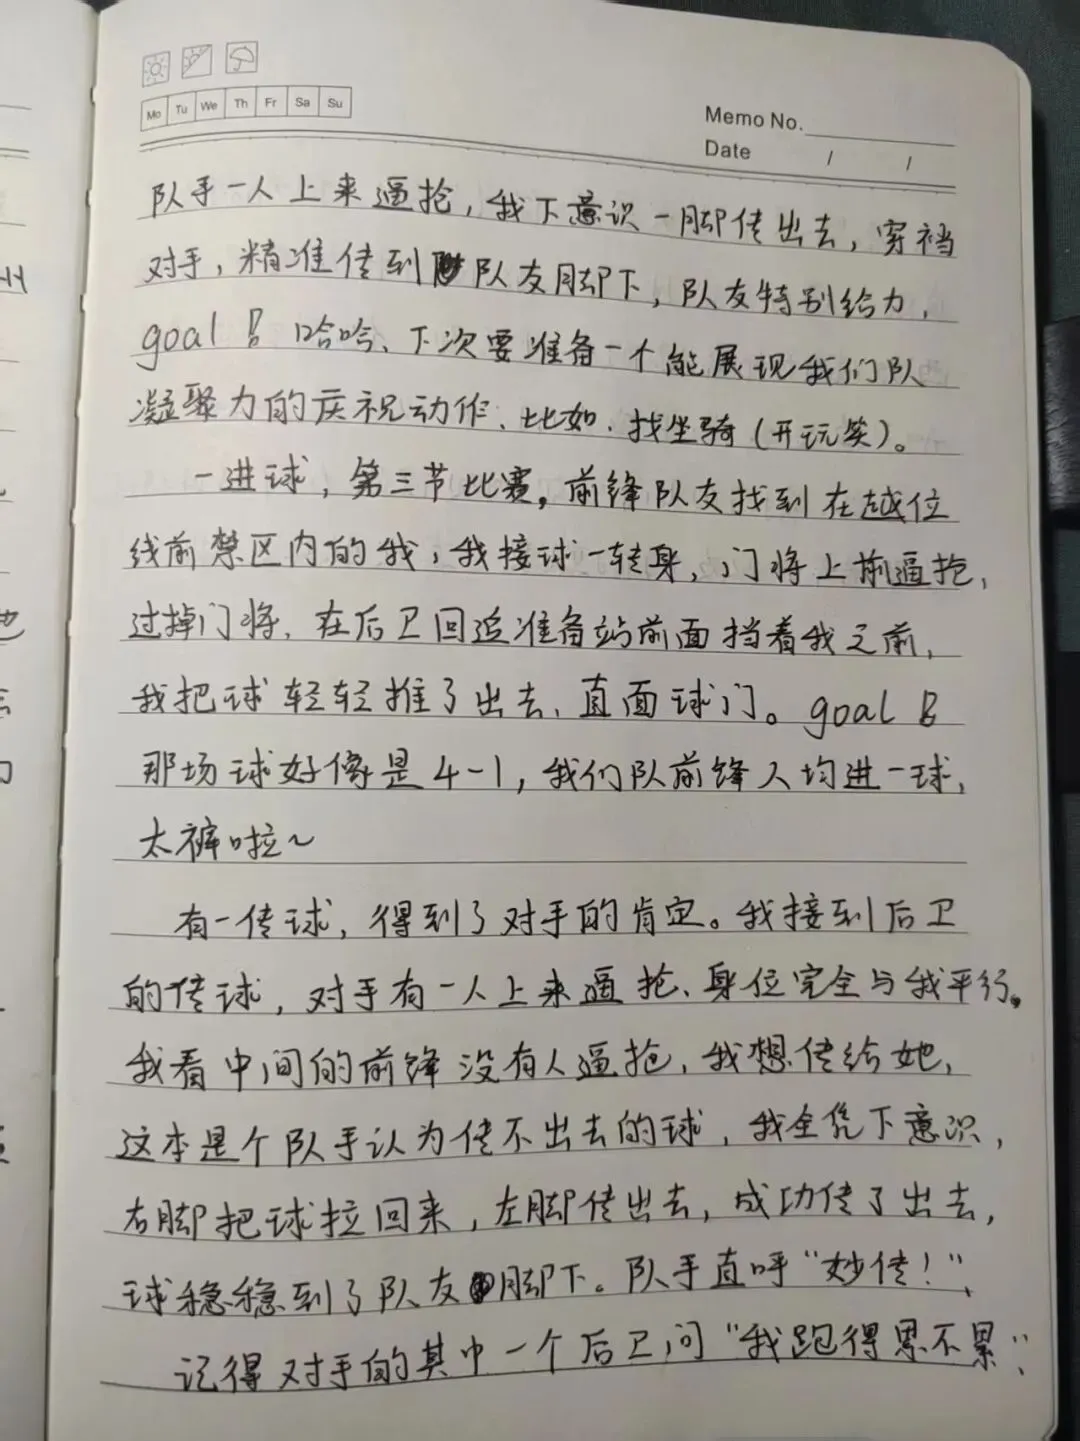 Mo Tu We Th Fr Sa Su
Memo No.
Date / /
队手一人上来逼抢，我下意识一脚传出去，穿裆
对手，精准传到队友脚下，队友特别给力，
goal 哈哈、下次要准备一个能展现我们队
凝聚力的庆祝动作、比如、找坐骑（开玩笑）。
一进球，第三节比赛，前锋队友找到在越位
线前禁区内的我，我接球一转身，门将上前逼抢，
过掉门将，在后卫回追准备站前面挡着我之前，
我把球轻轻推了出去、直面球门。goal
那场球好像是4-1，我们队前锋人均进一球，
太裤啦～
有一传球，得到了对手的肯定。我接到后卫
的传球，对手有一人上来逼抢、身位完全与我平行。
我看中间的前锋没有人逼抢，我想传给她，
这本是个队手认为传不出去的球，我全凭下意识，
右脚把球拉回来，左脚传出去，成功传了出去，
球稳稳到了队友脚下。队手直呼“妙传！”、
记得对手的其中一个后卫问“我跑得累不累”